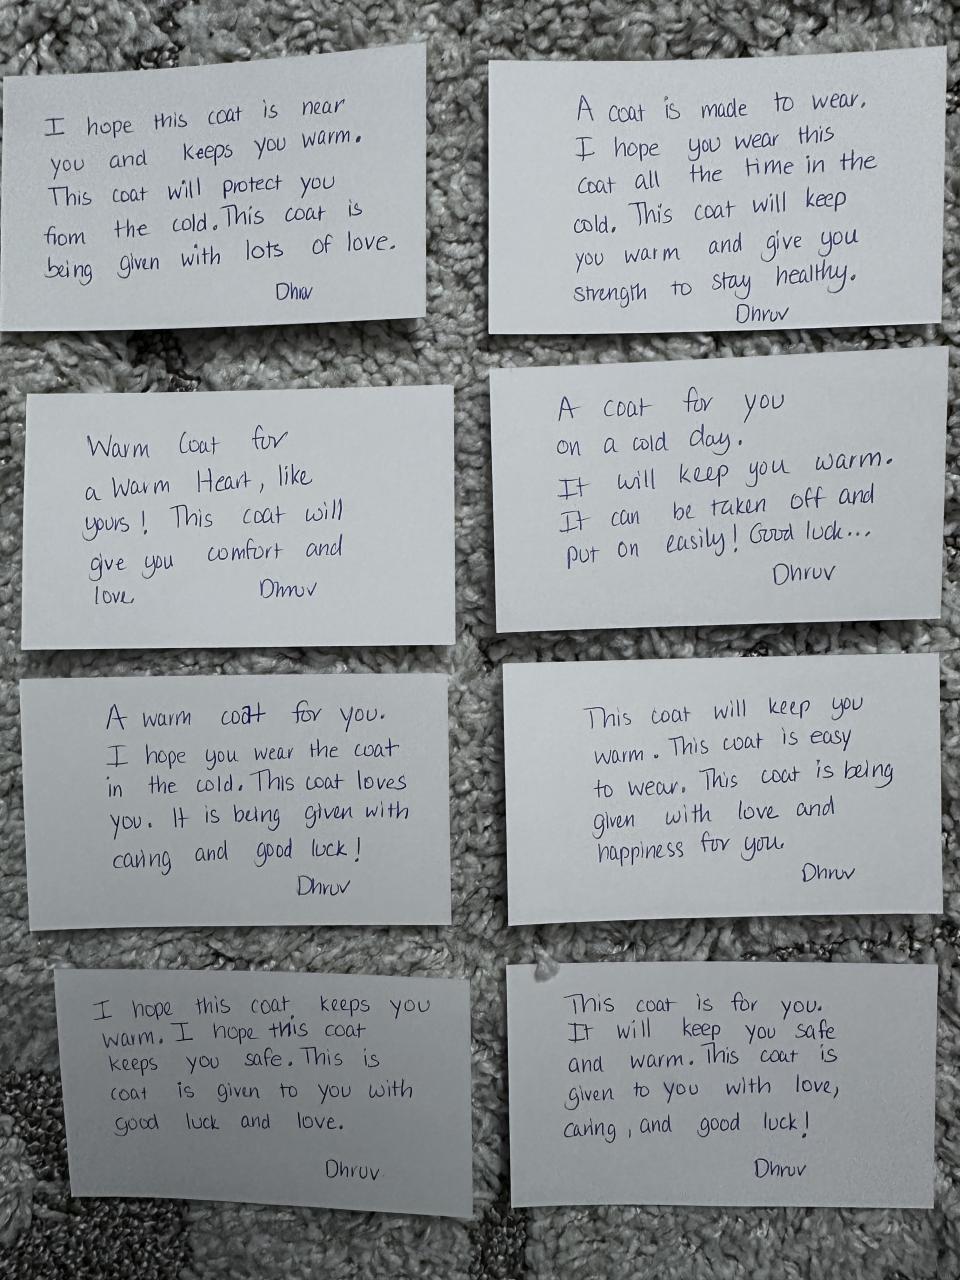 I hope this coat is near
you and keeps you warm.
This coat will protect you
from the cold. This coat is
being given with lots of love.
Dhruv
A coat is made to wear.
I hope you wear this
coat all the time in the
cold. This coat will keep
you warm and give you
strength to stay healthy.
Dhruv
Warm Coat for
a Warm Heart, like
yours! This coat will
give you comfort and
love.
Dhruv
A coat for you
on a cold day.
It will keep you warm.
It can be taken off and
put on easily! Good luck...
Dhruv
A warm coat for you.
I hope you wear the coat
in the cold. This coat loves
you. It is being given with
caring and good luck!
Dhruv
This coat will keep you
warm. This coat is easy
to wear. This coat is being
given with love and
happiness for you.
Dhruv
I hope this coat keeps you
warm. I hope this coat
keeps you safe. This is
coat is given to you with
good luck and love.
Dhruv
This coat is for you.
It will keep you safe
and warm. This coat is
given to you with love,
caring, and good luck!
Dhruv